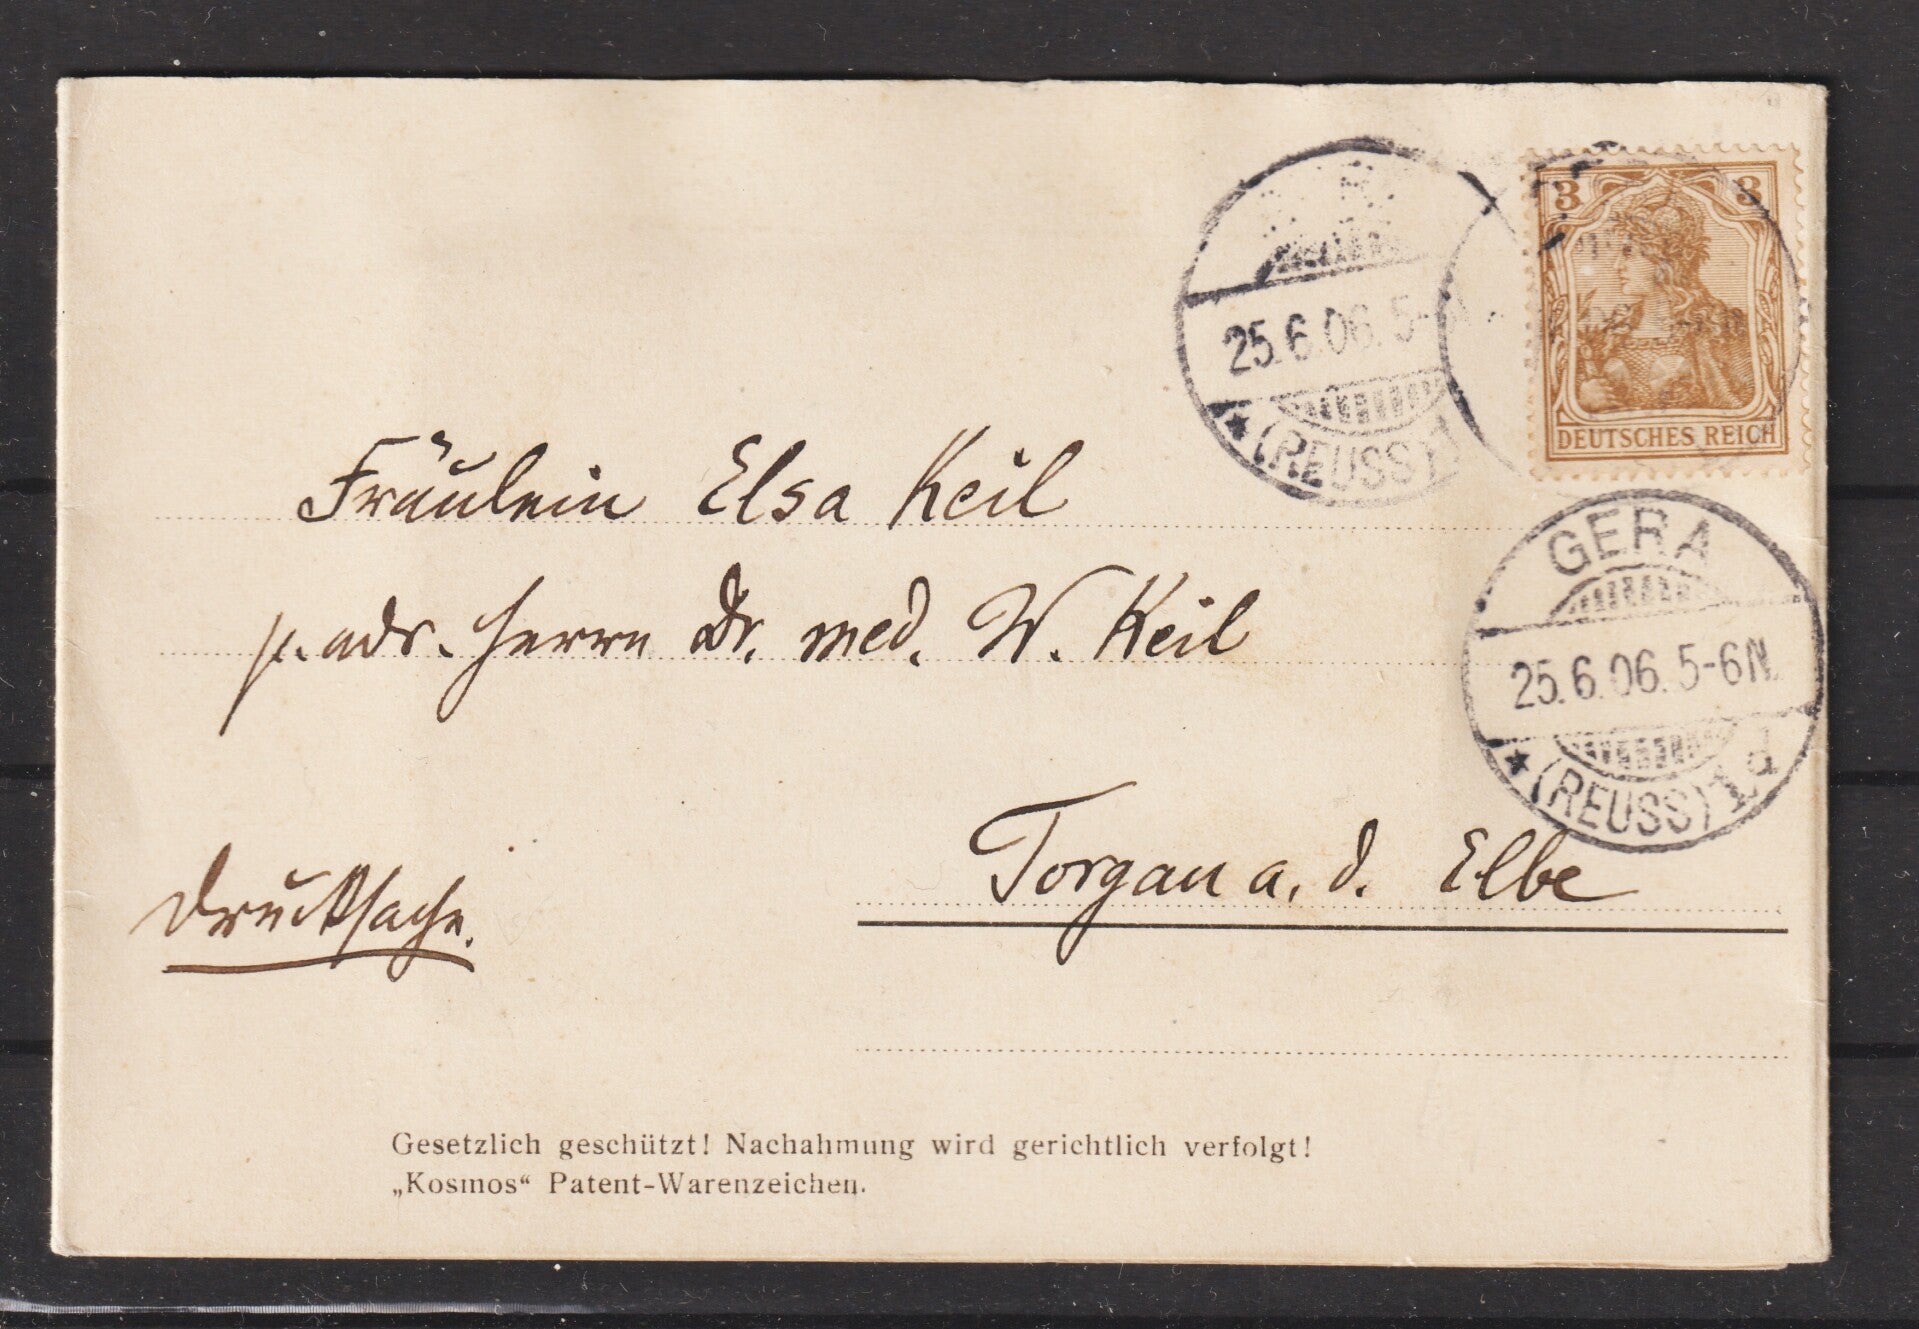 3 3
DEUTSCHES REICH
25.6.06.5-
* (REUSS) 1
GERA
25.6.06.5-6N.
* (REUSS) 1 d
Fräulein Elsa Keil
p. adr. Herrn Dr. med. W. Keil
Torgau a. d. Elbe
Drucksache.
Gesetzlich geschützt! Nachahmung wird gerichtlich verfolgt!
„Kosmos“ Patent-Warenzeichen.